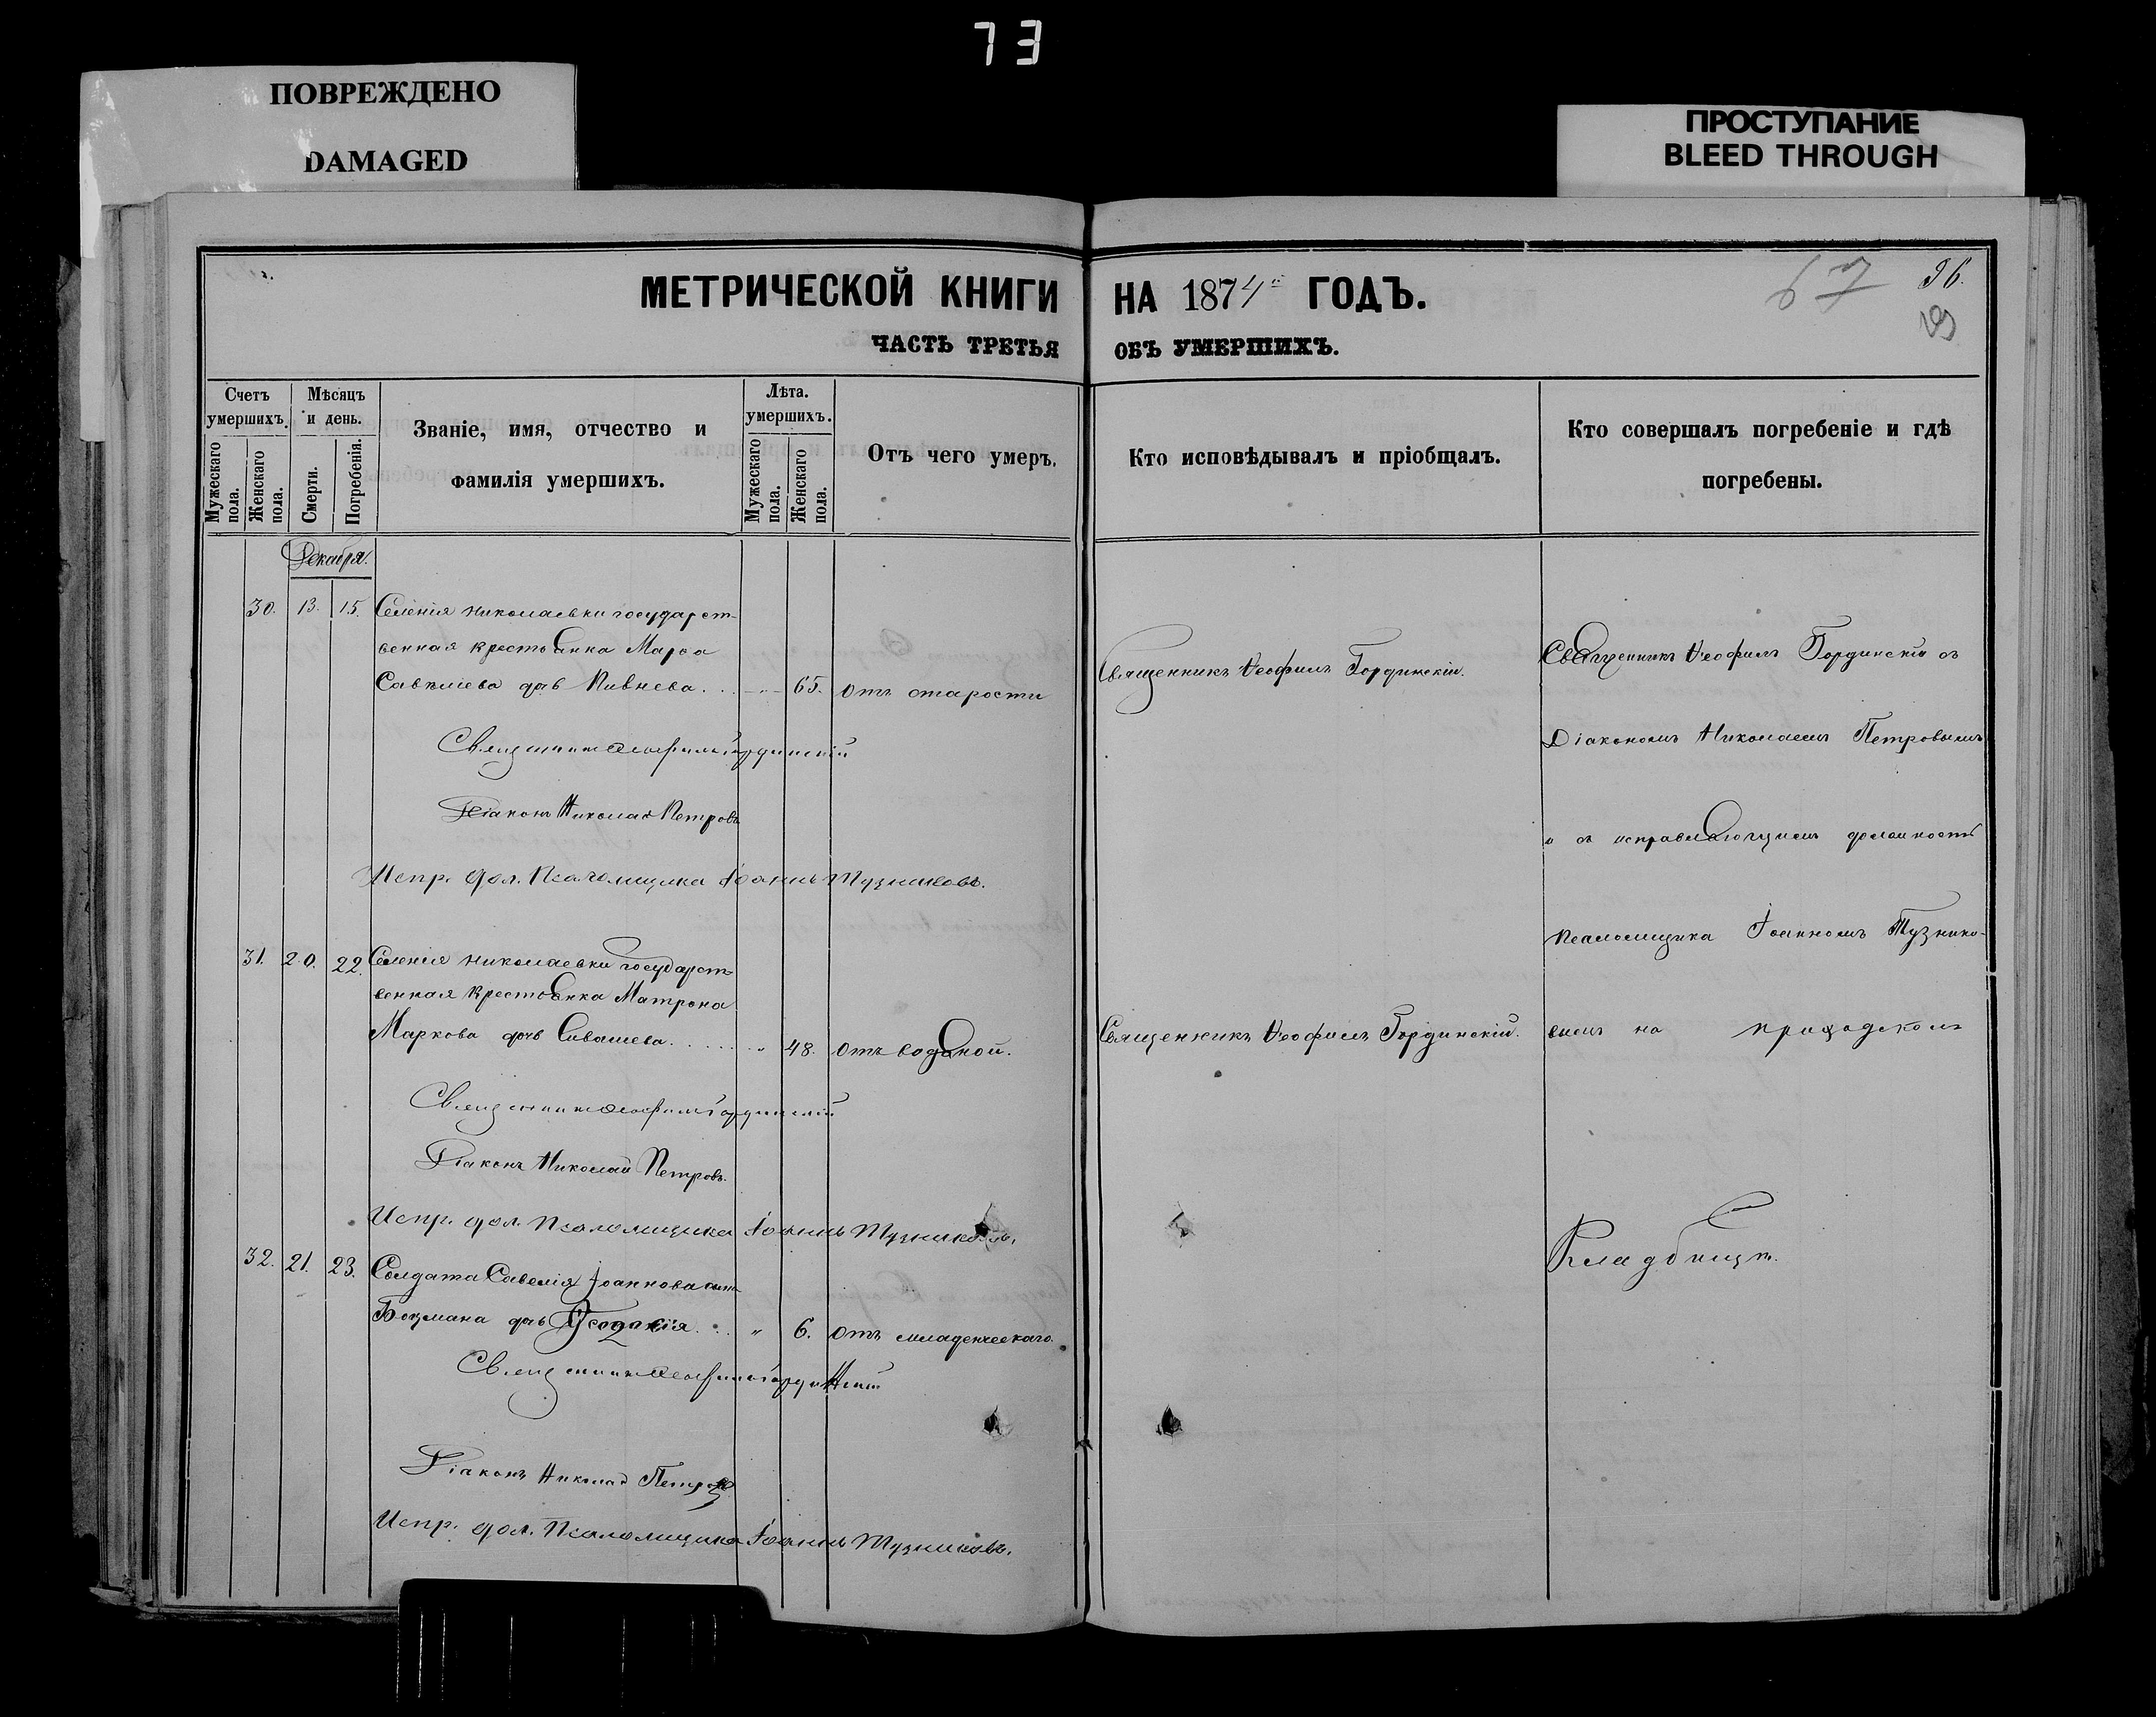 73
ПОВРЕЖДЕНО
DAMAGED
ПРОСТУПАНИЕ
BLEED THROUGH
МЕТРИЧЕСКОЙ КНИГИ НА 1874й ГОДЪ.
67 96.
ЧАСТЬ ТРЕТЬЯ ОБЪ УМЕРШИХЪ.
Счетъ умершихъ.
Мужескаго пола.
Женскаго пола.
Мѣсяцъ и день.
Смерти.
Погребенія.
Званіе, имя, отчество и
фамилія умершихъ.
Лѣта.
умершихъ.
Мужескаго пола.
Женскаго пола.
Отъ чего умеръ.
Кто исповѣдывалъ и пріобщалъ.
Кто совершалъ погребеніе и гдѣ
погребены.
Декабря.
30. 13. 15. Селенія Николаевки государст-
венная крестьянка Марѳа
Савеліева дочь Пивнева. 65. отъ старости
Священникъ Ѳеофилъ Гординскій.
Священникъ Ѳеофилъ Гординскій
Діаконъ Николай Петровъ
Испр. дол. Псаломщика Іоаннъ Тузниковъ.
31. 20. 22. Селенія Николаевки государст-
венная крестьянка Матрона
Маркова дочь Сивашева. " 48. отъ водяной.
Священникъ Ѳеофилъ Гординскій.
Священникъ Ѳеофилъ Гординскій
Діаконъ Николай Петровъ.
Испр. дол. Псаломщика Іоаннъ Тузниковъ.
32. 21. 23. Солдата Савелія Іоаннова сына
Боцмана дочь " 6. отъ младенческаго.
Священникъ Ѳеофилъ Гординскій
Діаконъ Николай Петровъ
Испр. дол. Псаломщика Іоаннъ Тузниковъ.
Священникъ Ѳеофилъ Гординскій съ
Діакономъ Николаемъ Петровымъ
и съ исправляющимъ должность
псаломщика Іоанномъ Тузнико-
вымъ на приходскомъ
Кладбищѣ.